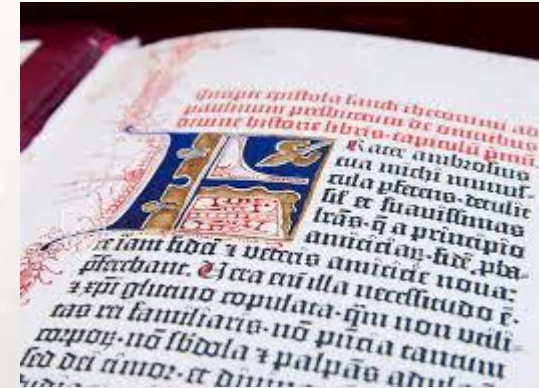 Incipit epistola sancti iheronimi ad
paulinum presbiterum de omnibus
divine historie libris·capitulū pmū.
Frater ambrosius
tua michi munus-
cula pferens·detulit
sil' et suavissimas
lrās·q̄ a principio
amiciciaꝝ·fidē pba-
te iam fidei ⁊ veteris amicicie nova:
pferebant. Vera eni illa necessitudo ē·
⁊ xpi glutino copulata·qm non utili-
tas rei familiaris·nō pncia tantum
corpoꝝ·nō sbdola ⁊ palpās adula
sed dei timor·et divin